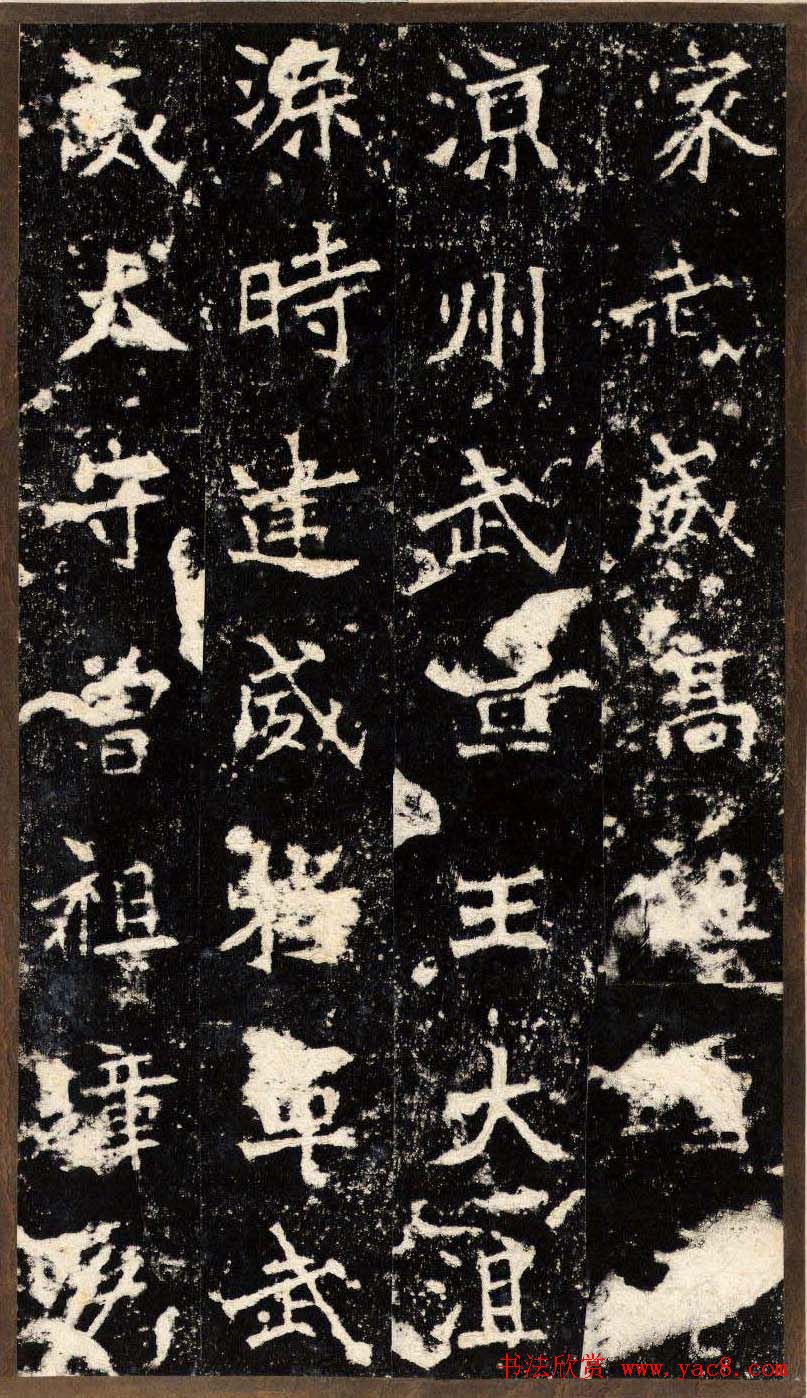 家武威高祖
涼州武宣王大沮
渠時建威將軍武
威太守曾祖璋
书法欣赏 www.yac8.com